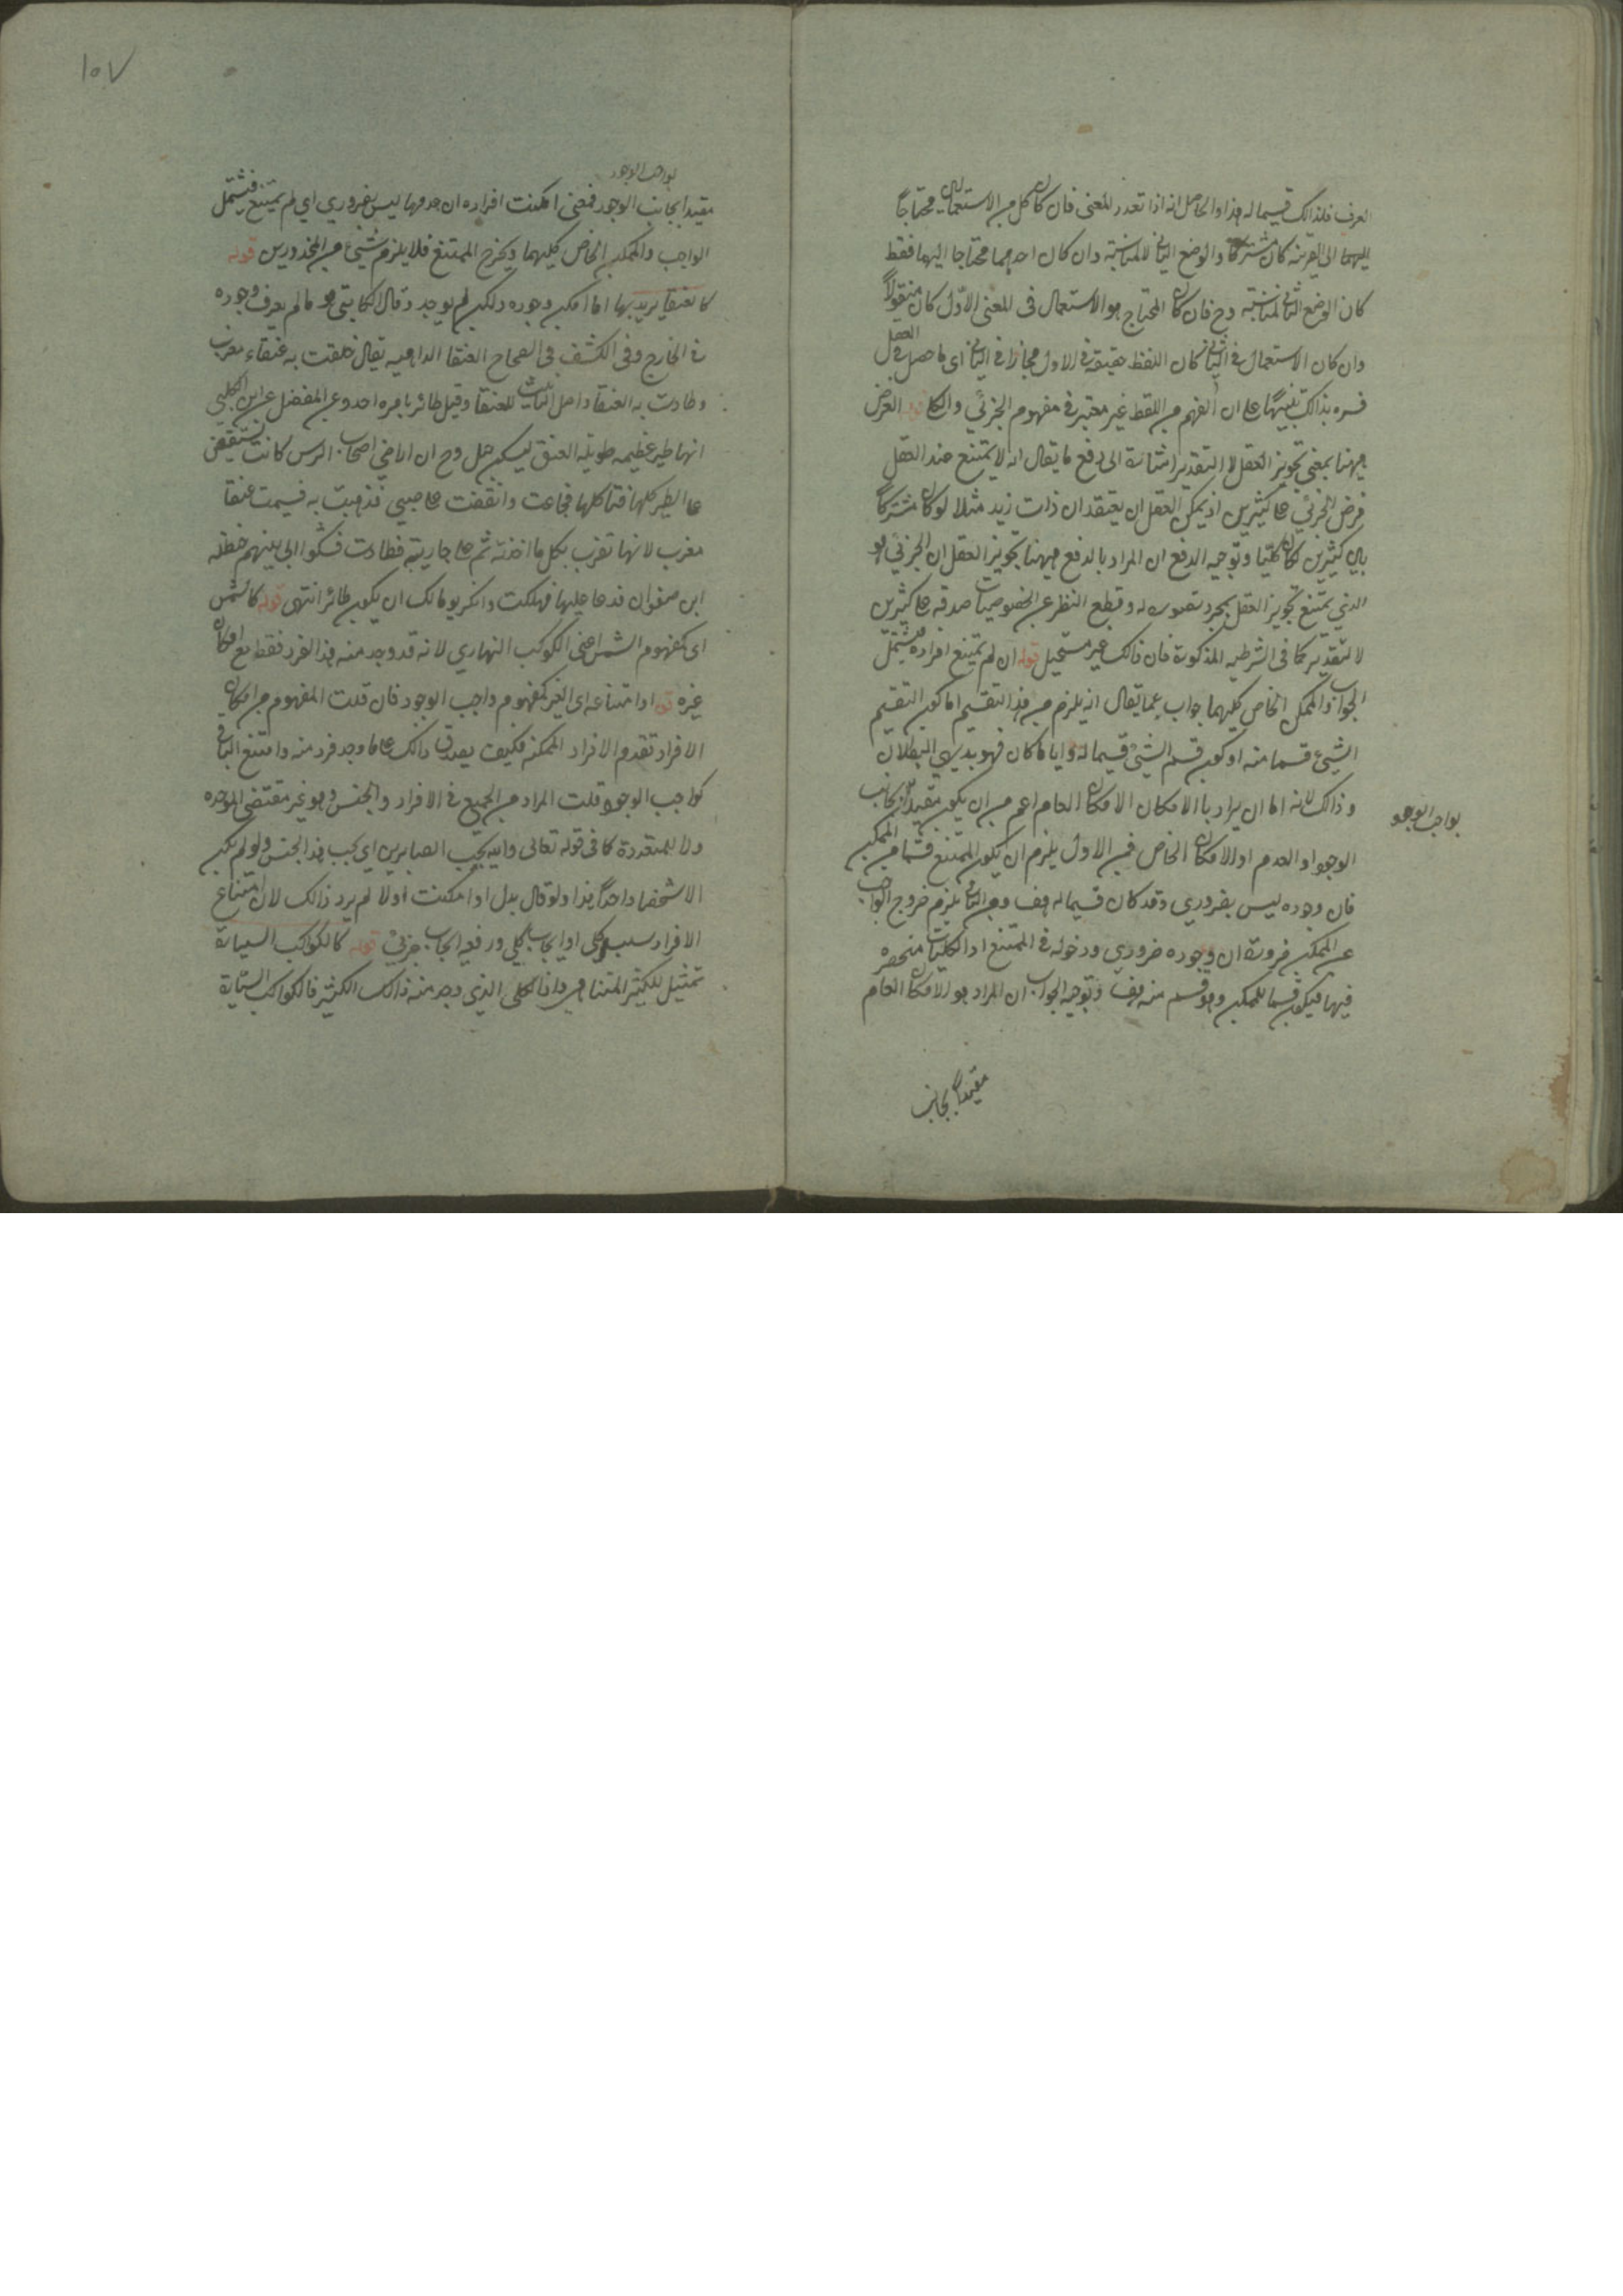 العرف فلذالك قسيما له هذا والحاصل انه اذا تعدد المعنى فان كان كل من الاستعمالين محتاجاً
اليهما الى القرينه كان مشتركا والوضع الثانى لا لمناسبته وان كان احدهما محتاجا اليهما فقط
كان الوضع الثانى لمناسبته وح فان كان المحتاج هو الاستعمال فى المعنى الاول كان منقولاً
وان كان الاستعمال فى الثانى كان اللفظ حقيقة فى الاول مجازا فى الثانى اى ما حصل فى العقل
فسره بذالك تنبيهًا على ان الفهم من اللفظ غير معتبر فى مفهوم الجزئي والكلى قوله الفرض
ههنا بمعنى تجويز العقل لا التقدير اشارة الى دفع ما يقال انه لا يمتنع عند العقل
فرض الجزئي على كثيرين اذ يمكن العقل ان يعتقد ان ذات زيد مثلا لو كان مشتركاً
بين كثيرين لكان كليّا وتوجيه الدفع ان المراد بالدفع ههنا تجويز العقل ان الجزئي هو
الذي يمتنع تجويز العقل بمجرد تصوره له وقطع النظر عن الخصوصيات صدقه على كثيرين
لا لتقدير كما فى الشرطيه المذكورة فان ذالك غير مستحيل قوله ان لم يمتنع افراده فيشتمل
الواجب والممكن الخاص كليهما جواب عما يقال انه يلزم من هذا التقسيم اما كون القسيم
الشيئ قسما منه او كون قسم الشيئ قسيما له وايا ما كان فهو بديهي البطلان
وذالك لانه اما ان يراد با الامكان الامكان العام اعم من ان يكون مقيداً بجانب
الوجود او العدم او الامكان الخاص فمن الاول يلزم ان يكون الممتنع قسما من الممكن
فان وجوده ليس بضروري وقد كان قسيما له هف ومن الثانى يلزم خروج الواجب
عن الممكن ضرورة ان وجوده ضروري ودخوله فى الممتنع اذ الكليات منحصره
فيها فيكون قسما للممكن وهو قسم منه هف وتوجيه الجواب ان المراد هو الامكان العام
بواجب الوجود
مقيداً بجانب
١٥٧
بواجب الوجود
مقيدا بجانب الوجود فمعنى امكنت افراده ان عدمها ليس بضروري اي لم يمتنع فيشتمل
الواجب والممكن الخاص كليهما ويخرج الممتنع فلا يلزم شيئ من المحذورين قوله
كا لعنقا يريد بها اما امكن وجوده ولكن لم يوجد وقال الكاتبي هو ما لم يعرف وجوده
فى الخارج وفى الكشف فى الصحاح العنقا الداهيه يقال حلقت به عنقاء مغرب
وطارت به العنقا واصل التانيث للعنقا وقيل طائر يا مره احد وعن المفضل عن ابن الكلبي
انها طير عظيمه طويلة العنق ليسكن جبل وح ان اراضي اصحاب الرس كانت تنقض
على الطير كلها فتا كلها فجاعت وانقضت على صبيى فذهبت به فسيمت عنقا
مغرب لانها تغرب بكل ما اخذته ثم على جارية فطارت فشكوا الى نبيهم حنظله
ابن صفوان فدعا عليها فهلكت وانكر يومانك ان يكون طائر انتهى قوله كالشمس
اى كمفهوم الشمس اعنى الكوكب النهاري لانه قد وجد منه هذا الفرد فقط مع امكان
غيره قوله او امتناعه اى الغير كمفهوم واجب الوجود فان قلت المفهوم من امكان
الافراد تقدم الافراد الممكنه فكيف يصدق ذالك على ما وجد فرد منه وامتنع الباقى
كواجب الوجود قلت المراد من الجميع فى الافراد والجنس وهو غير مقتضى الوحده
ولا للمتعددة كما فى قوله تعالى والله يحب الصابرين اي يحب هذا الجنس ولو لم يكن
الاشخصا واحداً هذا ولو قال بدل او امكنت او لا لم يرد ذالك لان امتناع
الافراد سلب كلى او ايجاب كلي ورفع ايجاب جزئي قوله كالكواكب السيارة
تمثيل للكثير المتناهى وانما الكلى الذى وجد منه ذالك الكثير فالكواكب السيارة